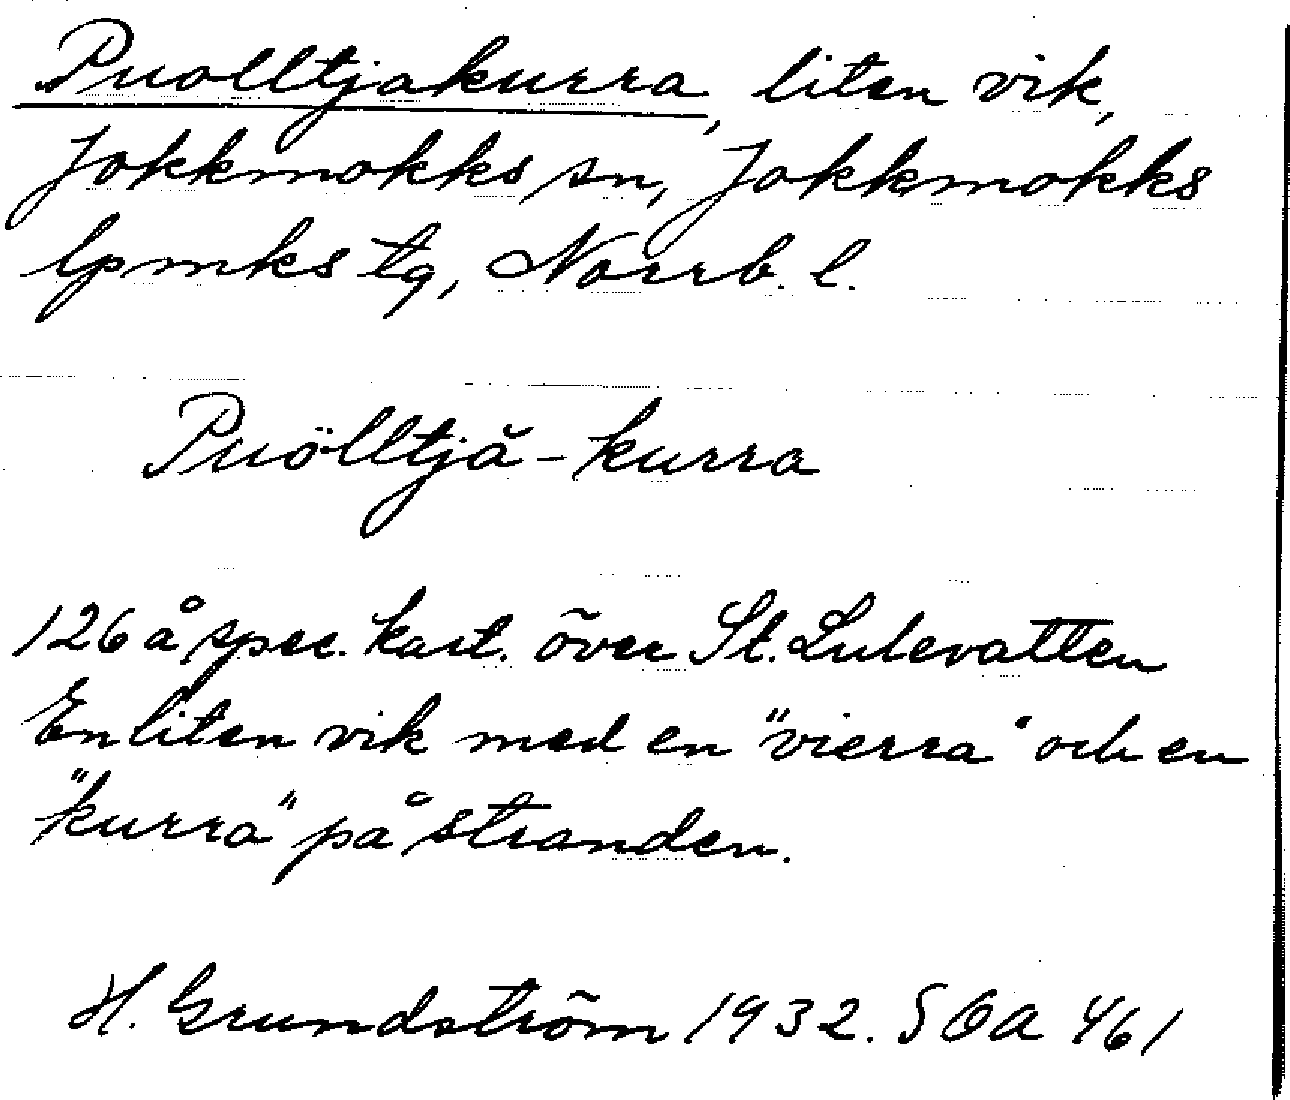 Puolltjakurra, liten vik,
Jokkmokks sn, Jokkmokks
lpmks tg, Norrb. l.
Puölltjă-kurra
126 å spec. kart. över St. Lulevatten
En liten vik med en "vierra" och en
"kurra" på stranden.
H. Grundström 1932. SOA 461